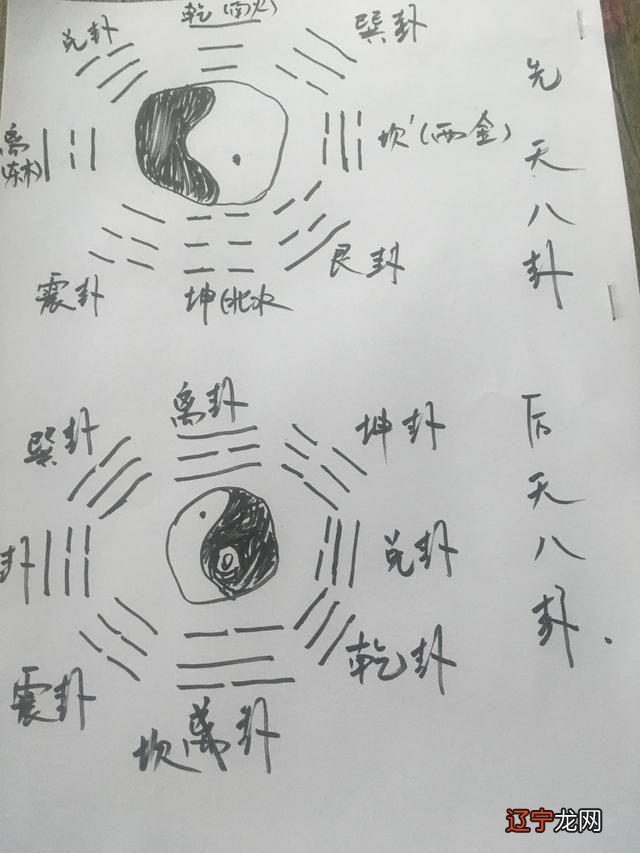 乾(南火)
兑卦
巽卦
离
(东木)
坎(西金)
震卦
坤(北水
艮卦
先天八卦
离卦
巽卦
坤卦
卦
兑卦
震卦
乾卦
坎 卦
后天八卦.
辽宁龙网